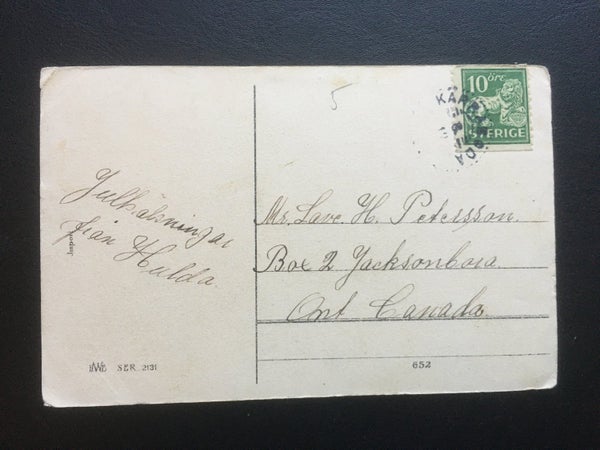 5
10 öre
SVERIGE
Julhälsningar
från Hulda.
Mr. Lave. H. Petersson.
Box 2 Jacksonboro
Ont Canada.
SER. 2131
652